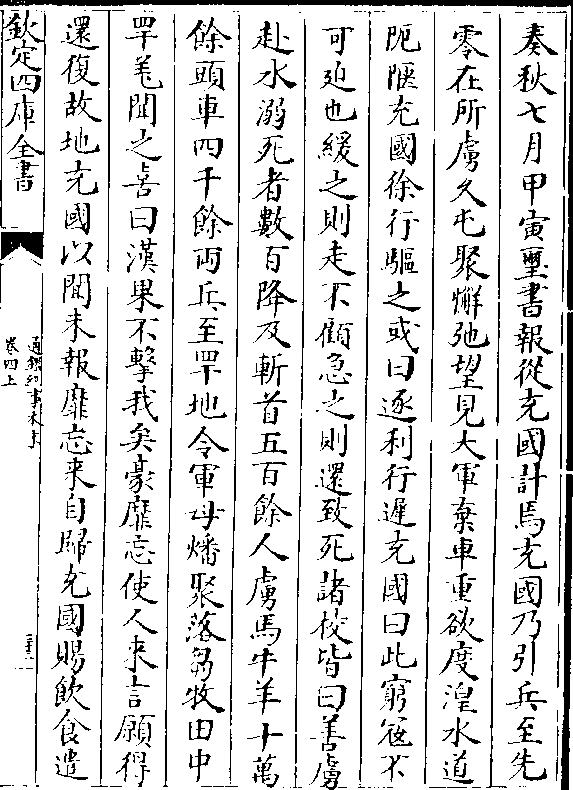 奏秋七月甲寅璽書報從充國計焉充國乃引兵至先
零在所虜久屯聚懈弛望見大軍棄車重欲度湟水道
阨陿充國徐行驅之或曰逐利行遲充國曰此窮寇不
可迫也緩之則走不顧急之則還致死諸校皆曰善虜
赴水溺死者數百降及斬首五百餘人虜馬牛羊十萬
餘頭車四千餘兩兵至罕地令軍毋燔聚落芻牧田中
罕羌聞之喜曰漢果不擊我矣豪靡忘使人來言願得
還復故地充國以聞未報靡忘来自歸充國賜飲食遣
欽定四庫全書
通鑑紀事本末
卷四上